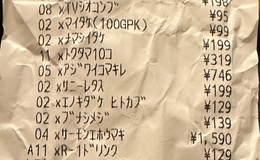 08 xTVシオコンブ ¥198
02 xマイタケ(100GPK) ¥95
02 xナマシイタケ ¥99
11 xトクタマ10コ ¥199
05 xアジワイコマキレ ¥319
02 xサニーレタス ¥746
02 xエノキダケ ヒトカブ ¥199
02 xブナシメジ ¥129
04 xサーモンエホウマキ ¥139
A11 xR-1ドリンク ¥1,590
¥129